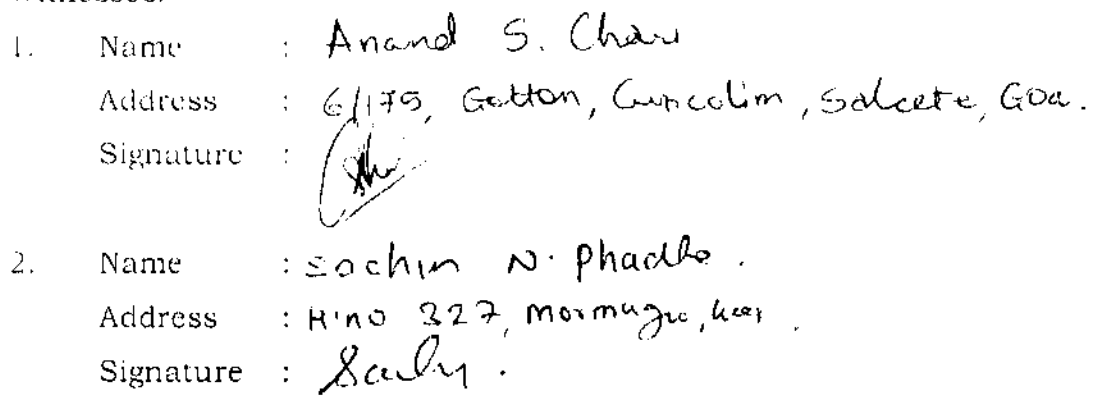 Witnesses:
1. Name : Anand S. Chari
Address : 6/175, Gotton, Cuncolim, Salcete, Goa.
Signature :
2. Name : Sachin N. Phadke.
Address : H.no 327, Mormugao, Goa.
Signature :